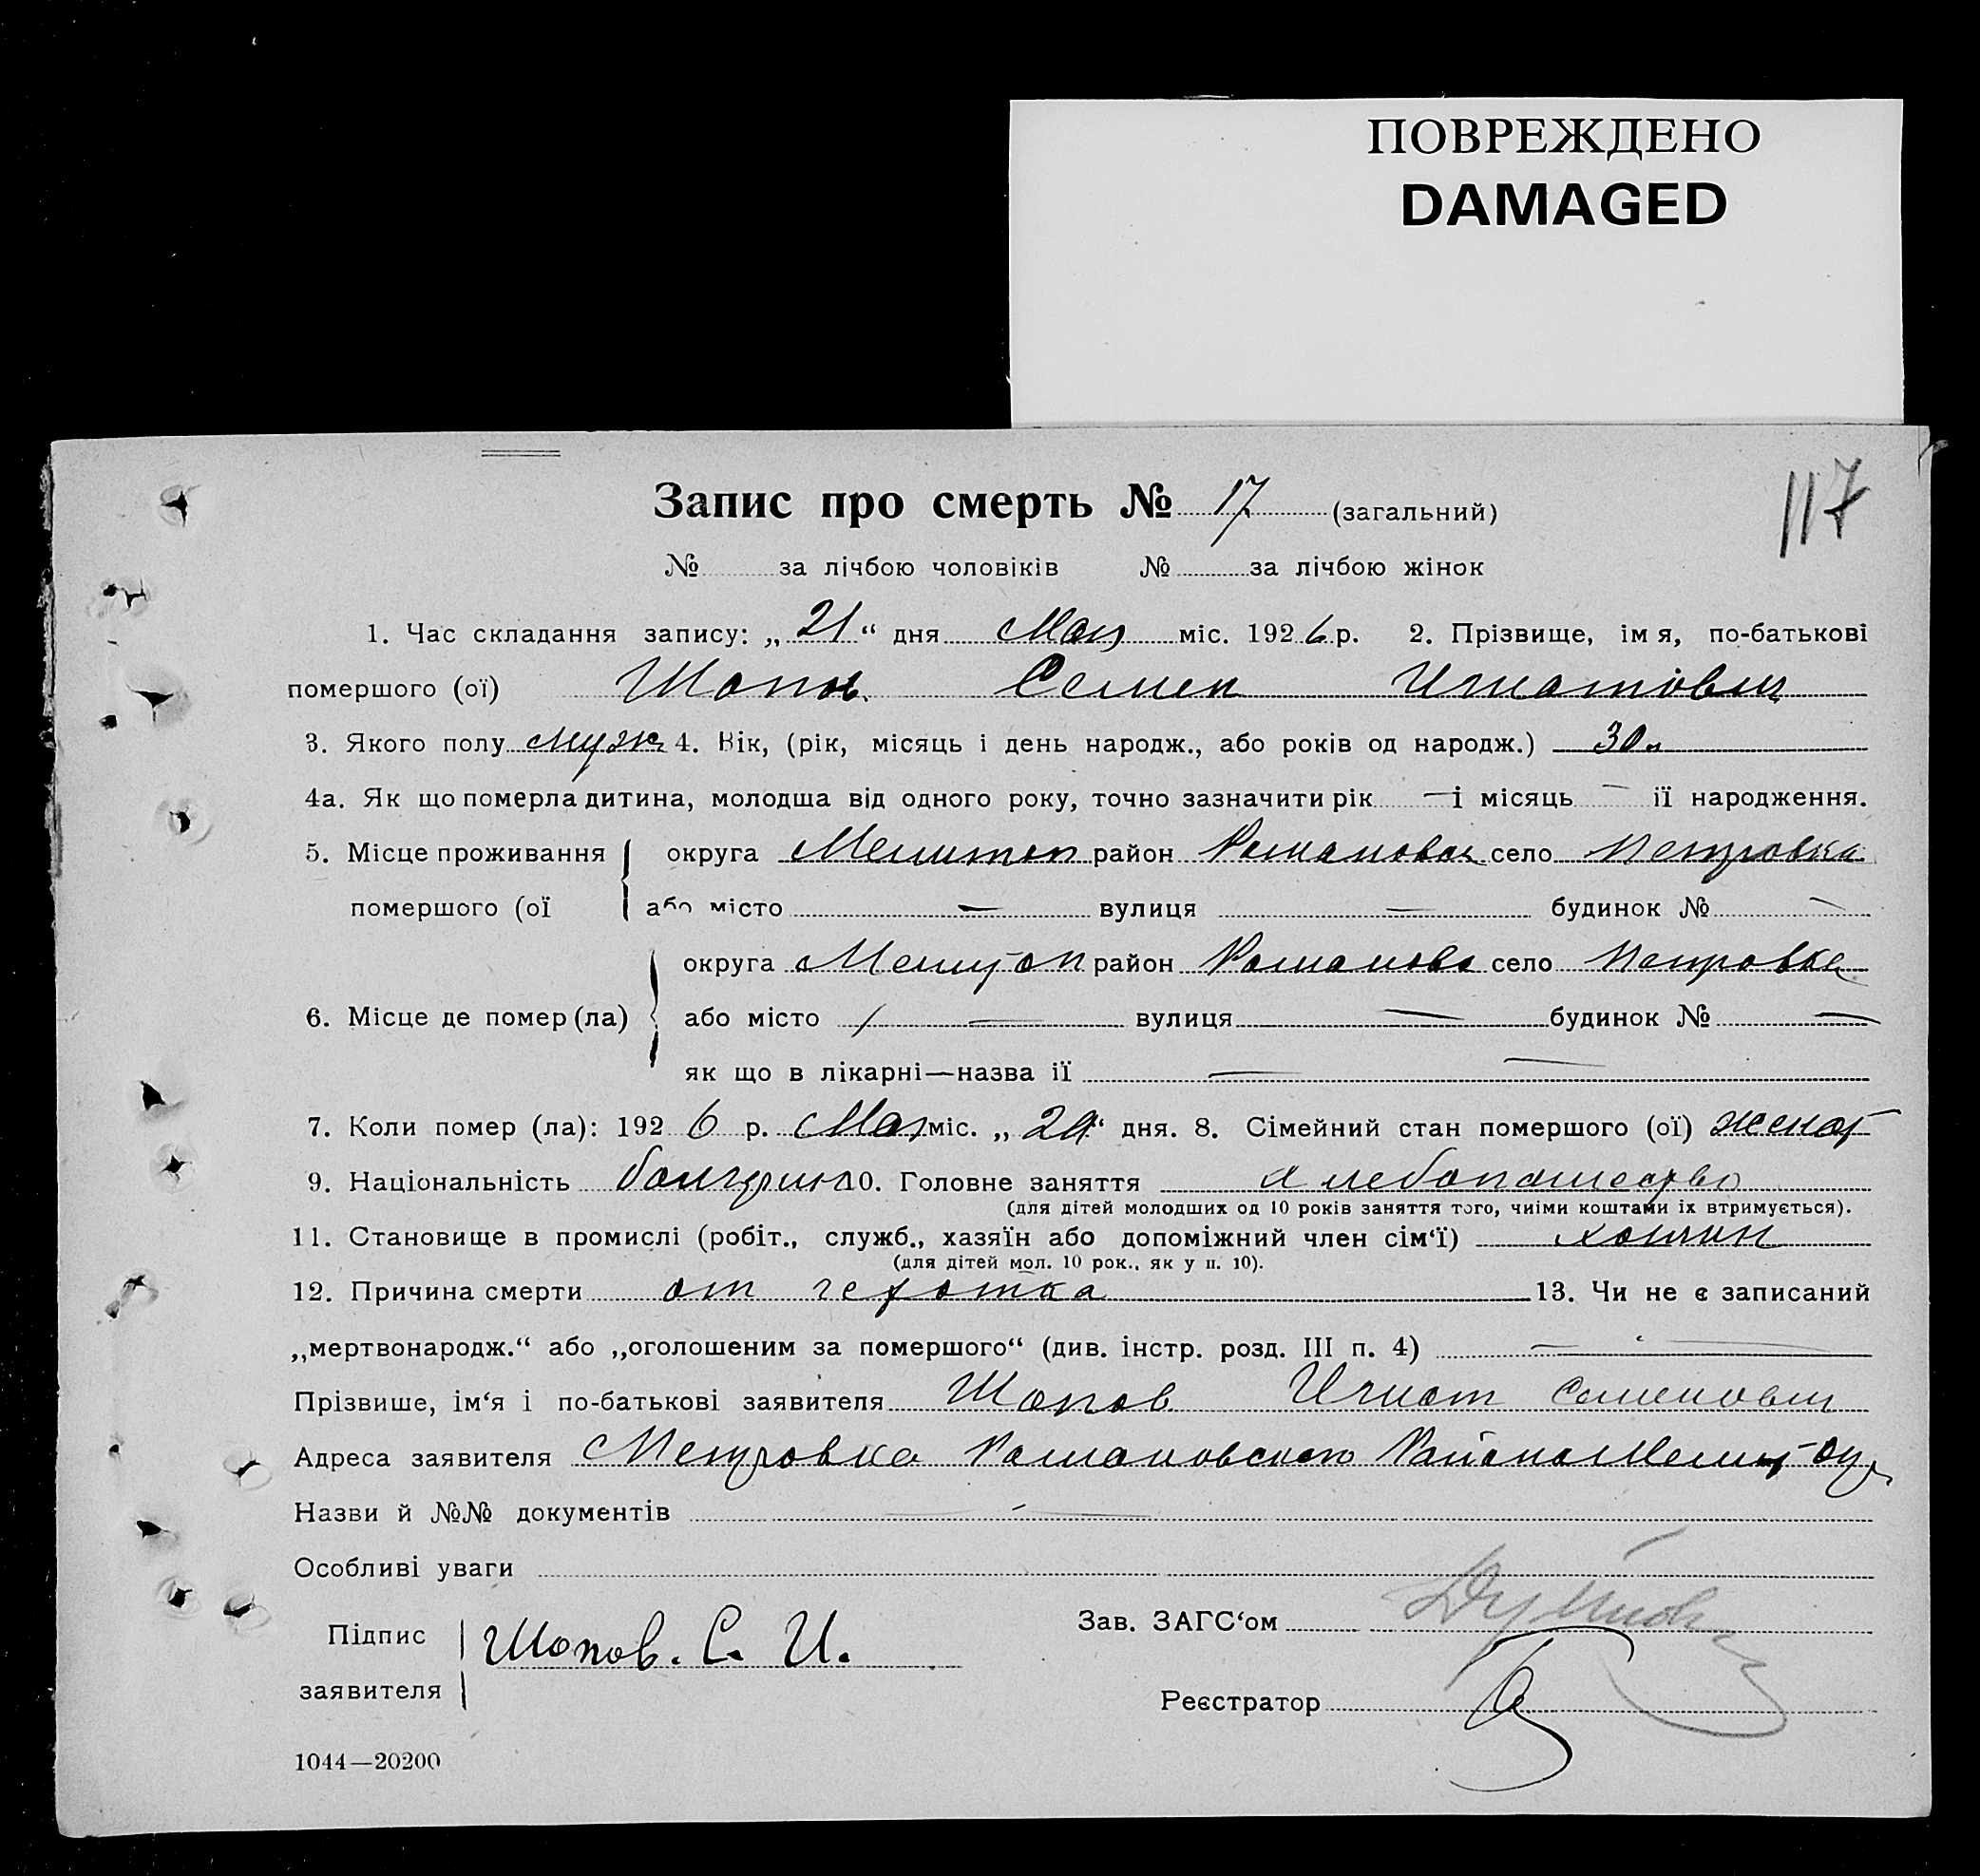 ПОВРЕЖДЕНО
DAMAGED
117
Запис про смерть № 17 (загальний)
№ за лічбою чоловіків № за лічбою жінок
1. Час складання запису: „ 21 “ дня Мая міс. 192 6 р. 2. Прізвище, імя, по-батькові
помершого (ої) Шопов Семен Игнатович
3. Якого полу муж 4. Вік, (рік, місяць і день народж., або років од народж.) 30 л
4а. Як що померла дитина, молодша від одного року, точно зазначити рік — і місяць — її народження.
5. Місце проживання округа Мелитоп район Романовск село Петровка
помершого (ої або місто — вулиця — будинок № —
округа Мелитоп район Романовс село Петровка
6. Місце де помер (ла) або місто — вулиця — будинок № —
як що в лікарні—назва її —
7. Коли помер (ла): 192 6 р. Мая міс. „ 20 “ дня. 8. Сімейний стан помершого (ої) женат
9. Національність болгарин 10. Головне заняття хлебопашество
(для дітей молодших од 10 років заняття того, чиїми коштами іх втримується).
11. Становище в промислі (робіт., служб., хазяїн або допоміжний член сім‘ї)
(для дітей мол. 10 рок., як у п. 10).
12. Причина смерти от чехотка 13. Чи не є записаний
„мертвонародж.“ або „оголошеним за помершого“ (див. інстр. розд. III п. 4) —
Прізвише, ім‘я і по-батькові заявителя Шопов Игнат Семенович
Адреса заявителя Петровка Романовского Района Мелит Окр
Назви й №№ документів —
Особливі уваги
Зав. ЗАГС‘ом
Підпис Шопов. С. И.
заявителя
Реєстратор
1044—20200